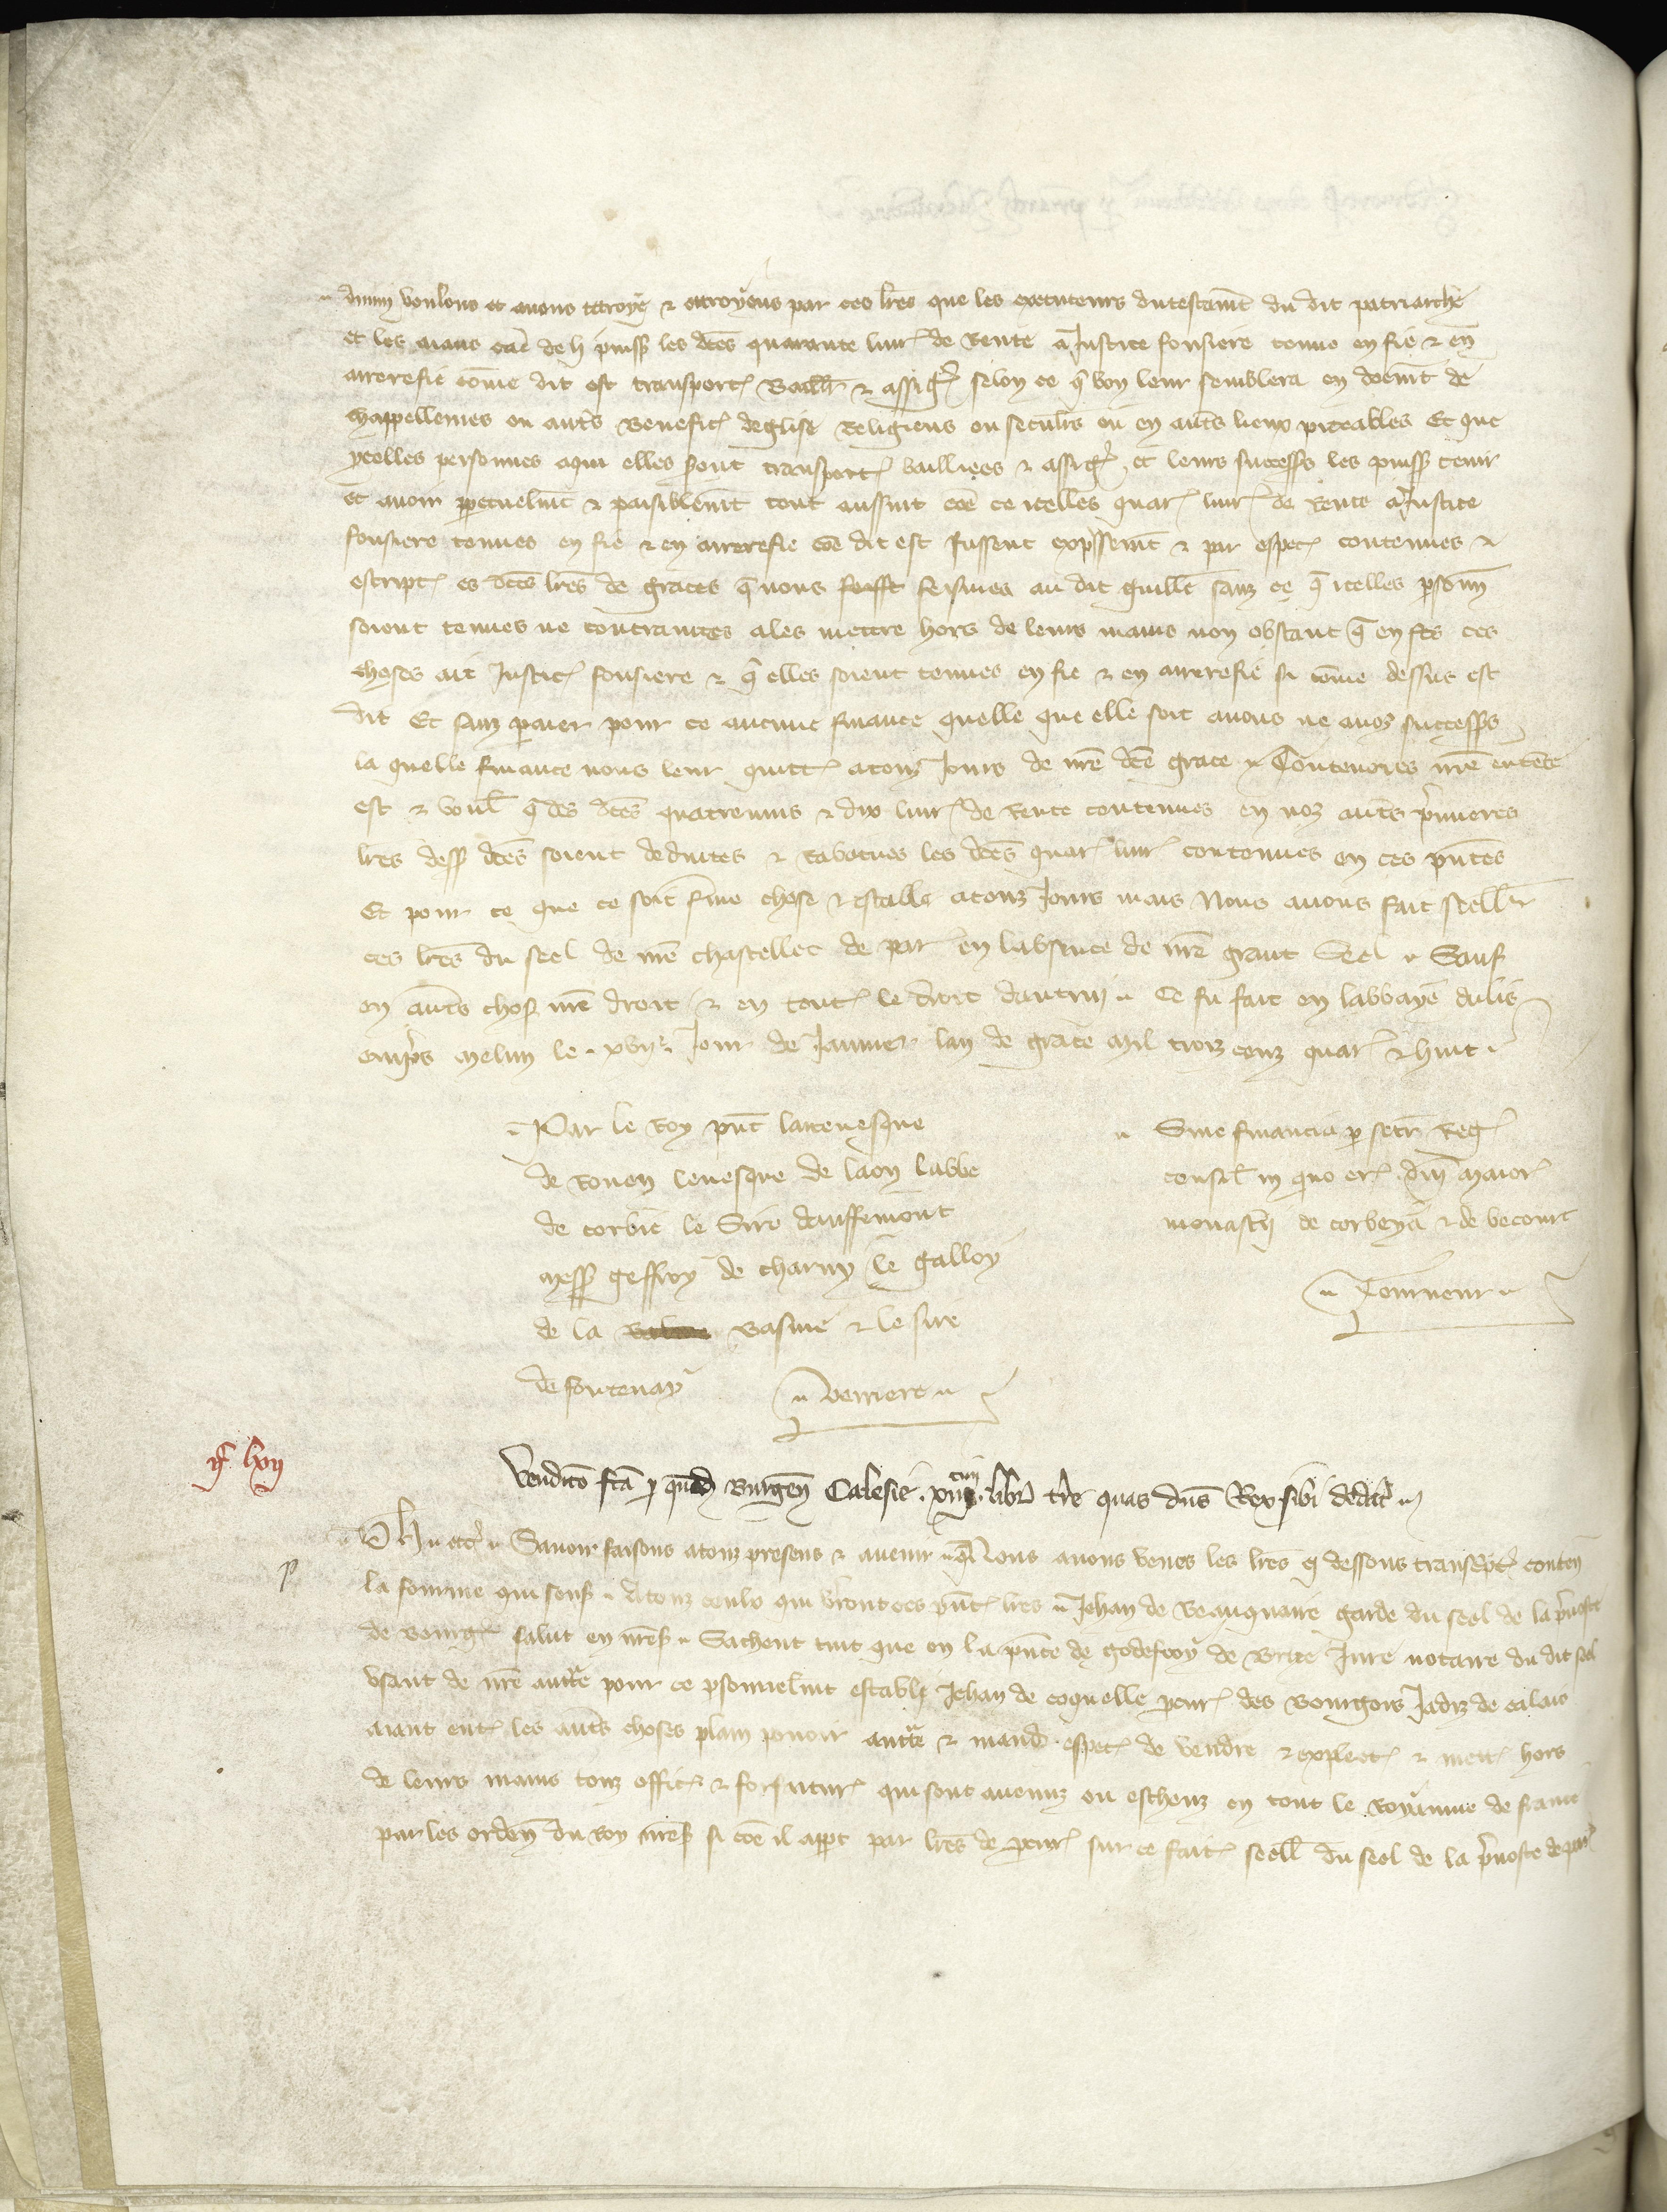 divin voulons et avons ottroye & ottroyons par ces lres que les executeurs du testamt du dit patriarche
et les aians cause de li puiss les dces quarante livr de rente a Justice fonsiere tenue en fie & en
arrerefie come dit est transport baill & assign selon ce q bon leur semblera en doemt de
chappellenies ou autrs benefic deglise religieus ou seculrs ou en autrs lieux piteables Et que
ycelles personnes a qui elles sont transport bailliees & assign et leurs successrs les puiss tenir
et avoir perpetuelmt & paisiblemt tout aussint coe ce icelles quar livr de rente a Justice
fonsiere tenues en fie & en arrerefie coe dit est fussent expssemt & par espec contenues &
escript es dces lres de graces q nous feismes au dit guille sanz ce q icelles psonn
soient tenues ne contraintes a les mettre hors de leurs mains non obstant q en ses ces
choses ait Justic fonsiere & q elles soient tenues en fie & en arrerefie si come dessus est
dit Et sanz paier pour ce aucune finance quelle que elle soit a nous ne a noz successrs
la quelle finance nous leur quitt a touz Jours de nre dce grace Contevores nre entente
est & voul q des dces quatrevins & dix livr de rente contenues en noz autrs primieres
lres dess dces soient deduites & rabatues les dces quar livr contenues en ces pntes
Et pour ce que ce soit ferme chose & estable a touz Jours mais Nous avons fait seell
ces lres du seel de nre chastellet de par en labsence de nre grant Seel Sauf
en autrs chos nre droit & en tout le droit dautrui Ce fu fait en labbaye du lis
emprs Melun le xviie Jour de Janvier lan de grace Mil troiz cenz quar & huit
Par le Roy pnt larcevesque
de Rouen levesque de laon labbe
de corbie le Sire dauffemont
Mess geffroy de charny le galloy
de la basme & le sire
de fontenay
verriere
Sine financia p secr Reg
consil in quo er dni Maior
monastii de corbeya & de becourt
Tourneur
iic lxvii
Vendico fca p quend burgen Calesie xiiii libr tre quas dns Rex sibi dedit
Ph etc Savoir faisons a touz presens & avenir q Nous avons veues les lres ci dessous transcpt conten
la fourme qui sens A touz ceulx qui verront ces pnt lres Jehan de beauquaire garde du seel de la prevoste
de bourg salut en nres Sachent tuit que en la pnce de godefroy de brite Jure notaire du dit seel
usant de nre aucte pour ce psonnelmt establi Jehan de coquelle pcur des bourgois Jadiz de calais
aiant ent les autrs choses plain pouoir aucte & mand espec de vendre & explect & mett hors
de leurs mains touz offic & forfaitur qui sont avenuz ou escheuz en tout le royaume de france
par les orden du Roy nres si coe il appt par lres de pcur sur ce fait seell du seel de la prevoste de par